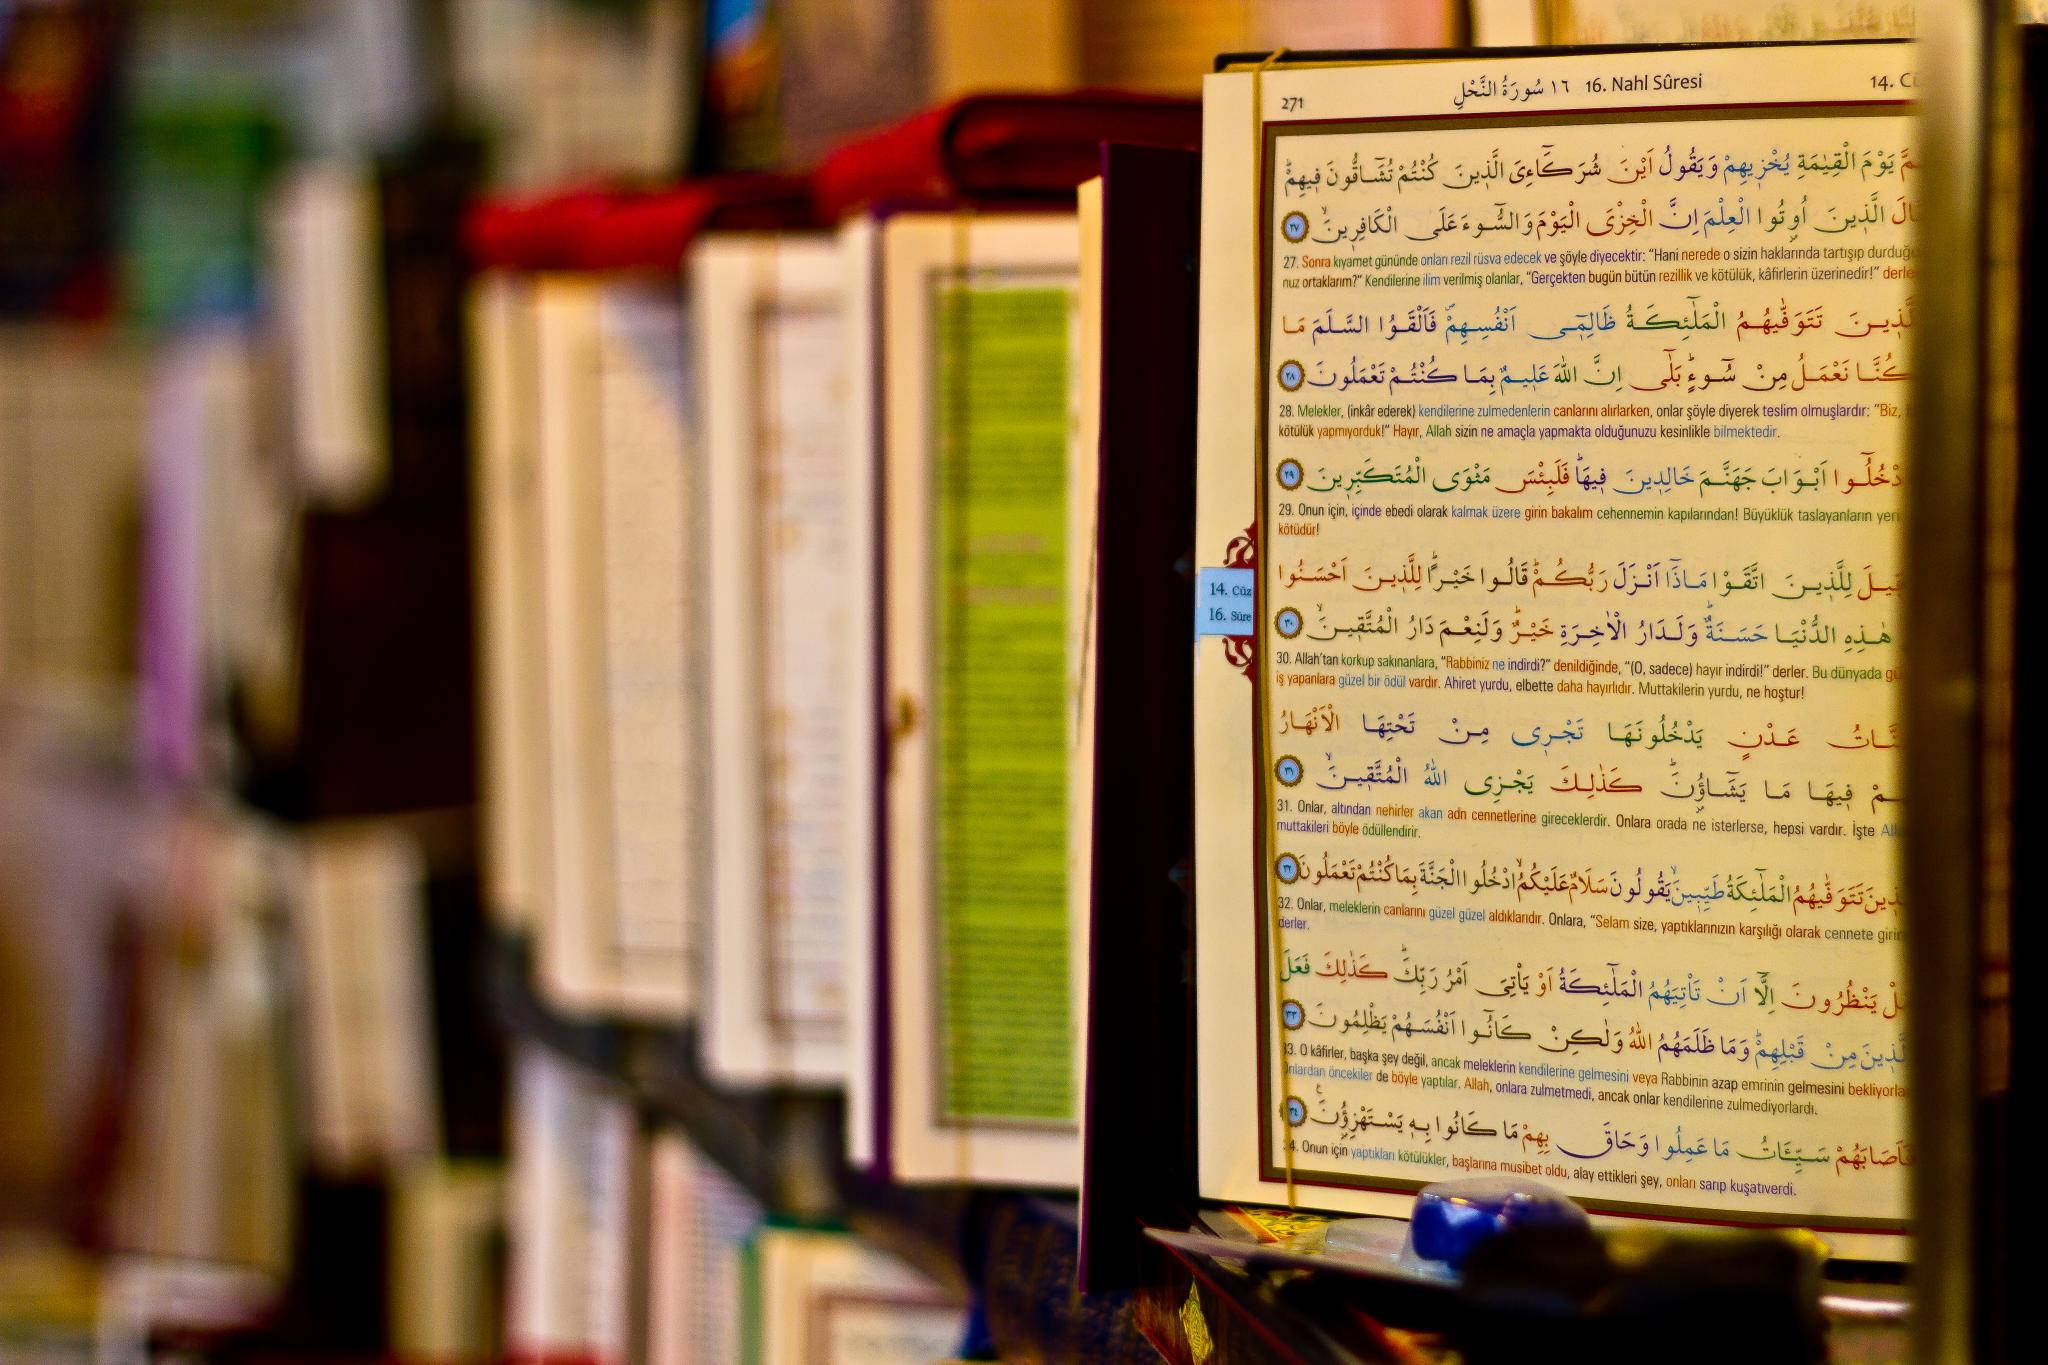 271
١٦ سُورَةُ النَّحْلِ 16. Nahl Sûresi
14.
يَوْمَ الْقِيٰمَةِ يُخْزٖيهِمْ وَيَقُولُ اَيْنَ شُرَكَٓاءِىَ الَّذٖينَ كُنْتُمْ تُشَٓاقُّونَ فٖيهِمْ
الَّذٖينَ اُو۫تُوا الْعِلْمَ اِنَّ الْخِزْىَ الْيَوْمَ وَالسُّٓوءَ عَلَى الْكَافِرٖينَ ٢٧
27. Sonra kıyamet gününde onları rezil rüsva edecek ve şöyle diyecektir: "Hani nerede o sizin haklarında tartışıp durduğu
nuz ortaklarım?" Kendilerine ilim verilmiş olanlar, "Gerçekten bugün bütün rezillik ve kötülük, kâfirlerin üzerinedir!" derle
تَتَوَفّٰيهُمُ الْمَلٰٓئِكَةُ ظَالِمٖٓى اَنْفُسِهِمْ فَاَلْقَوُا السَّلَمَ مَا
كُنَّا نَعْمَلُ مِنْ سُٓوءٍ بَلٰٓى اِنَّ اللّٰهَ عَلٖيمٌ بِمَا كُنْتُمْ تَعْمَلُونَ ٢٨
28. Melekler, (inkâr ederek) kendilerine zulmedenlerin canlarını alırlarken, onlar şöyle diyerek teslim olmuşlardır: "Biz,
kötülük yapmıyorduk!" Hayır, Allah sizin ne amaçla yapmakta olduğunuzu kesinlikle bilmektedir.
اَبْوَابَ جَهَنَّمَ خَالِدٖينَ فٖيهَا فَلَبِئْسَ مَثْوَى الْمُتَكَبِّرٖينَ ٢٩
29. Onun için, içinde ebedi olarak kalmak üzere girin bakalım cehennemin kapılarından! Büyüklük taslayanların yeri
kötüdür!
14. Cüz
16. Sûre
لِلَّذٖينَ اتَّقَوْا مَاذَٓا اَنْزَلَ رَبُّكُمْ قَالُوا خَيْرًا لِلَّذٖينَ اَحْسَنُوا
هٰذِهِ الدُّنْيَا حَسَنَةٌ وَلَدَارُ الْاٰخِرَةِ خَيْرٌ وَلَنِعْمَ دَارُ الْمُتَّقٖينَ ٣٠
30. Allah'tan korkup sakınanlara, "Rabbiniz ne indirdi?" denildiğinde, "(O, sadece) hayır indirdi!" derler. Bu dünyada gü
iş yapanlara güzel bir ödül vardır. Ahiret yurdu, elbette daha hayırlıdır. Muttakilerin yurdu, ne hoştur!
عَدْنٍ يَدْخُلُونَهَا تَجْرٖى مِنْ تَحْتِهَا الْاَنْهَارُ
فٖيهَا مَا يَشَٓاؤُ۫نَ كَذٰلِكَ يَجْزِى اللّٰهُ الْمُتَّقٖينَ ٣١
31. Onlar, altından nehirler akan adn cennetlerine gireceklerdir. Onlara orada ne isterlerse, hepsi vardır. İşte All
muttakileri böyle ödüllendirir.
تَتَوَفّٰيهُمُ الْمَلٰٓئِكَةُ طَيِّبٖينَ يَقُولُونَ سَلَامٌ عَلَيْكُمُ ادْخُلُوا الْجَنَّةَ بِمَا كُنْتُمْ تَعْمَلُونَ ٣٢
32. Onlar, meleklerin canlarını güzel güzel aldıklarıdır. Onlara, "Selam size, yaptıklarınızın karşılığı olarak cennete girin
derler.
يَنْظُرُونَ اِلَّٓا اَنْ تَاْتِيَهُمُ الْمَلٰٓئِكَةُ اَوْ يَاْتِىَ اَمْرُ رَبِّكَ كَذٰلِكَ فَعَلَ
مِنْ قَبْلِهِمْ وَمَا ظَلَمَهُمُ اللّٰهُ وَلٰكِنْ كَانُٓوا اَنْفُسَهُمْ يَظْلِمُونَ ٣٣
33. O kâfirler, başka şey değil, ancak meleklerin kendilerine gelmesini veya Rabbinin azap emrinin gelmesini bekliyorla
Onlardan öncekiler de böyle yaptılar. Allah, onlara zulmetmedi, ancak onlar kendilerine zulmediyorlardı.
فَاَصَابَهُمْ سَيِّـَٔاتُ مَا عَمِلُوا وَحَاقَ بِهِمْ مَا كَانُوا بِهٖ يَسْتَهْزِؤُ۫نَ ٣٤
34. Onun için yaptıkları kötülükler, başlarına musibet oldu, alay ettikleri şey, onları sarıp kuşatıverdi.